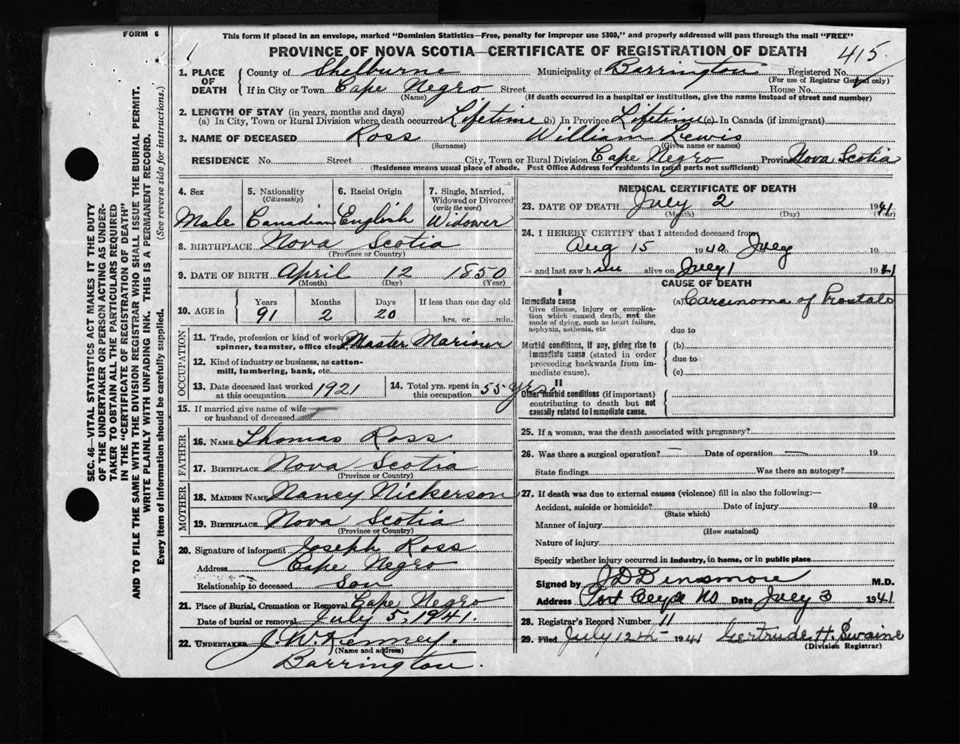 FORM 6
This form if placed in an envelope, marked "Dominion Statistics—Free, penalty for improper use $300," and properly addressed will pass through the mail "FREE"
1
PROVINCE OF NOVA SCOTIA—CERTIFICATE OF REGISTRATION OF DEATH
415
1. PLACE OF DEATH
County of Shelburne Municipality of Barrington Registered No.
(For use of Registrar General only)
If in City or Town Cape Negro Street House No.
(Name) (If death occurred in a hospital or institution, give the name instead of street and number)
2. LENGTH OF STAY (in years, months and days)
(a) In City, Town or Rural Division where death occurred Lifetime (b) In Province Lifetime (c) In Canada (if immigrant)
3. NAME OF DECEASED Ross William Lewis
(Surname) (Given name or names)
RESIDENCE No. Street City, Town or Rural Division Cape Negro Province Nova Scotia
(Residence means usual place of abode. Post Office Address for residents in rural parts not sufficient)
4. Sex
Male
5. Nationality
(Citizenship)
Canadian
6. Racial Origin
English
7. Single, Married, Widowed or Divorced
(write the word)
Widower
8. BIRTHPLACE Nova Scotia
(Province or Country)
9. DATE OF BIRTH April 12 1850
(Month) (Day) (Year)
10. AGE in
Years Months Days If less than one day old
91 2 20 hrs. or min.
OCCUPATION
11. Trade, profession or kind of work as Master Mariner
spinner, teamster, office clerk, etc.
12. Kind of industry or business, as cotton-
mill, lumbering, bank, etc.
13. Date deceased last worked at this occupation 1921
14. Total yrs. spent in this occupation 55 yrs
15. If married give name of wife
or husband of deceased
FATHER
16. NAME Thomas Ross
17. BIRTHPLACE Nova Scotia
(Province or Country)
MOTHER
18. MAIDEN NAME Nancy Nickerson
19. BIRTHPLACE Nova Scotia
(Province or Country)
20. Signature of informant Joseph Ross
Address Cape Negro
Relationship to deceased Son
21. Place of Burial, Cremation or Removal Cape Negro
Date of burial or removal July 5, 1941.
22. UNDERTAKER J. W. Kenney.
(Name and address)
Barrington.
MEDICAL CERTIFICATE OF DEATH
23. DATE OF DEATH July 2 1941
(Month) (Day)
24. I HEREBY CERTIFY that I attended deceased from
Aug 15 1940 July 19
and last saw him alive on July 1 1941
CAUSE OF DEATH
I
Immediate cause
Give disease, injury or complica-
tion which caused death, not the
mode of dying, such as heart failure,
asphyxia, asthenia, etc
(a) Carcinoma of Prostate
due to
Morbid conditions, if any, giving rise to
immediate cause (stated in order
proceeding backwards from im-
mediate cause).
(b)
due to
(c)
II
Other morbid conditions (if important)
contributing to death but not
causally related to immediate cause.
25. If a woman, was the death associated with pregnancy?
26. Was there a surgical operation? — Date of operation — 19
State findings Was there an autopsy?
27. If death was due to external causes (violence) fill in also the following:—
Accident, suicide or homicide? Date of injury 19
(State which)
Manner of injury
(How sustained)
Nature of injury
Specify whether injury occurred in industry, in home, or in public place
Signed by J D Densmore M.D.
Address Port Clyde NS Date July 3 1941
28. Registrar's Record Number 11
29. Filed July 12th 1941 Gertrude H. Swaine
(Division Registrar)
SEC. 46—VITAL STATISTICS ACT MAKES IT THE DUTY
OF THE UNDERTAKER OR PERSON ACTING AS UNDER-
TAKER TO OBTAIN ALL THE PARTICULARS REQUIRED
IN THE "CERTIFICATE OF REGISTRATION OF DEATH"
AND TO FILE THE SAME WITH THE DIVISION REGISTRAR WHO SHALL ISSUE THE BURIAL PERMIT.
WRITE PLAINLY WITH UNFADING INK. THIS IS A PERMANENT RECORD.
Every item of information should be carefully supplied. (See reverse side for instructions.)